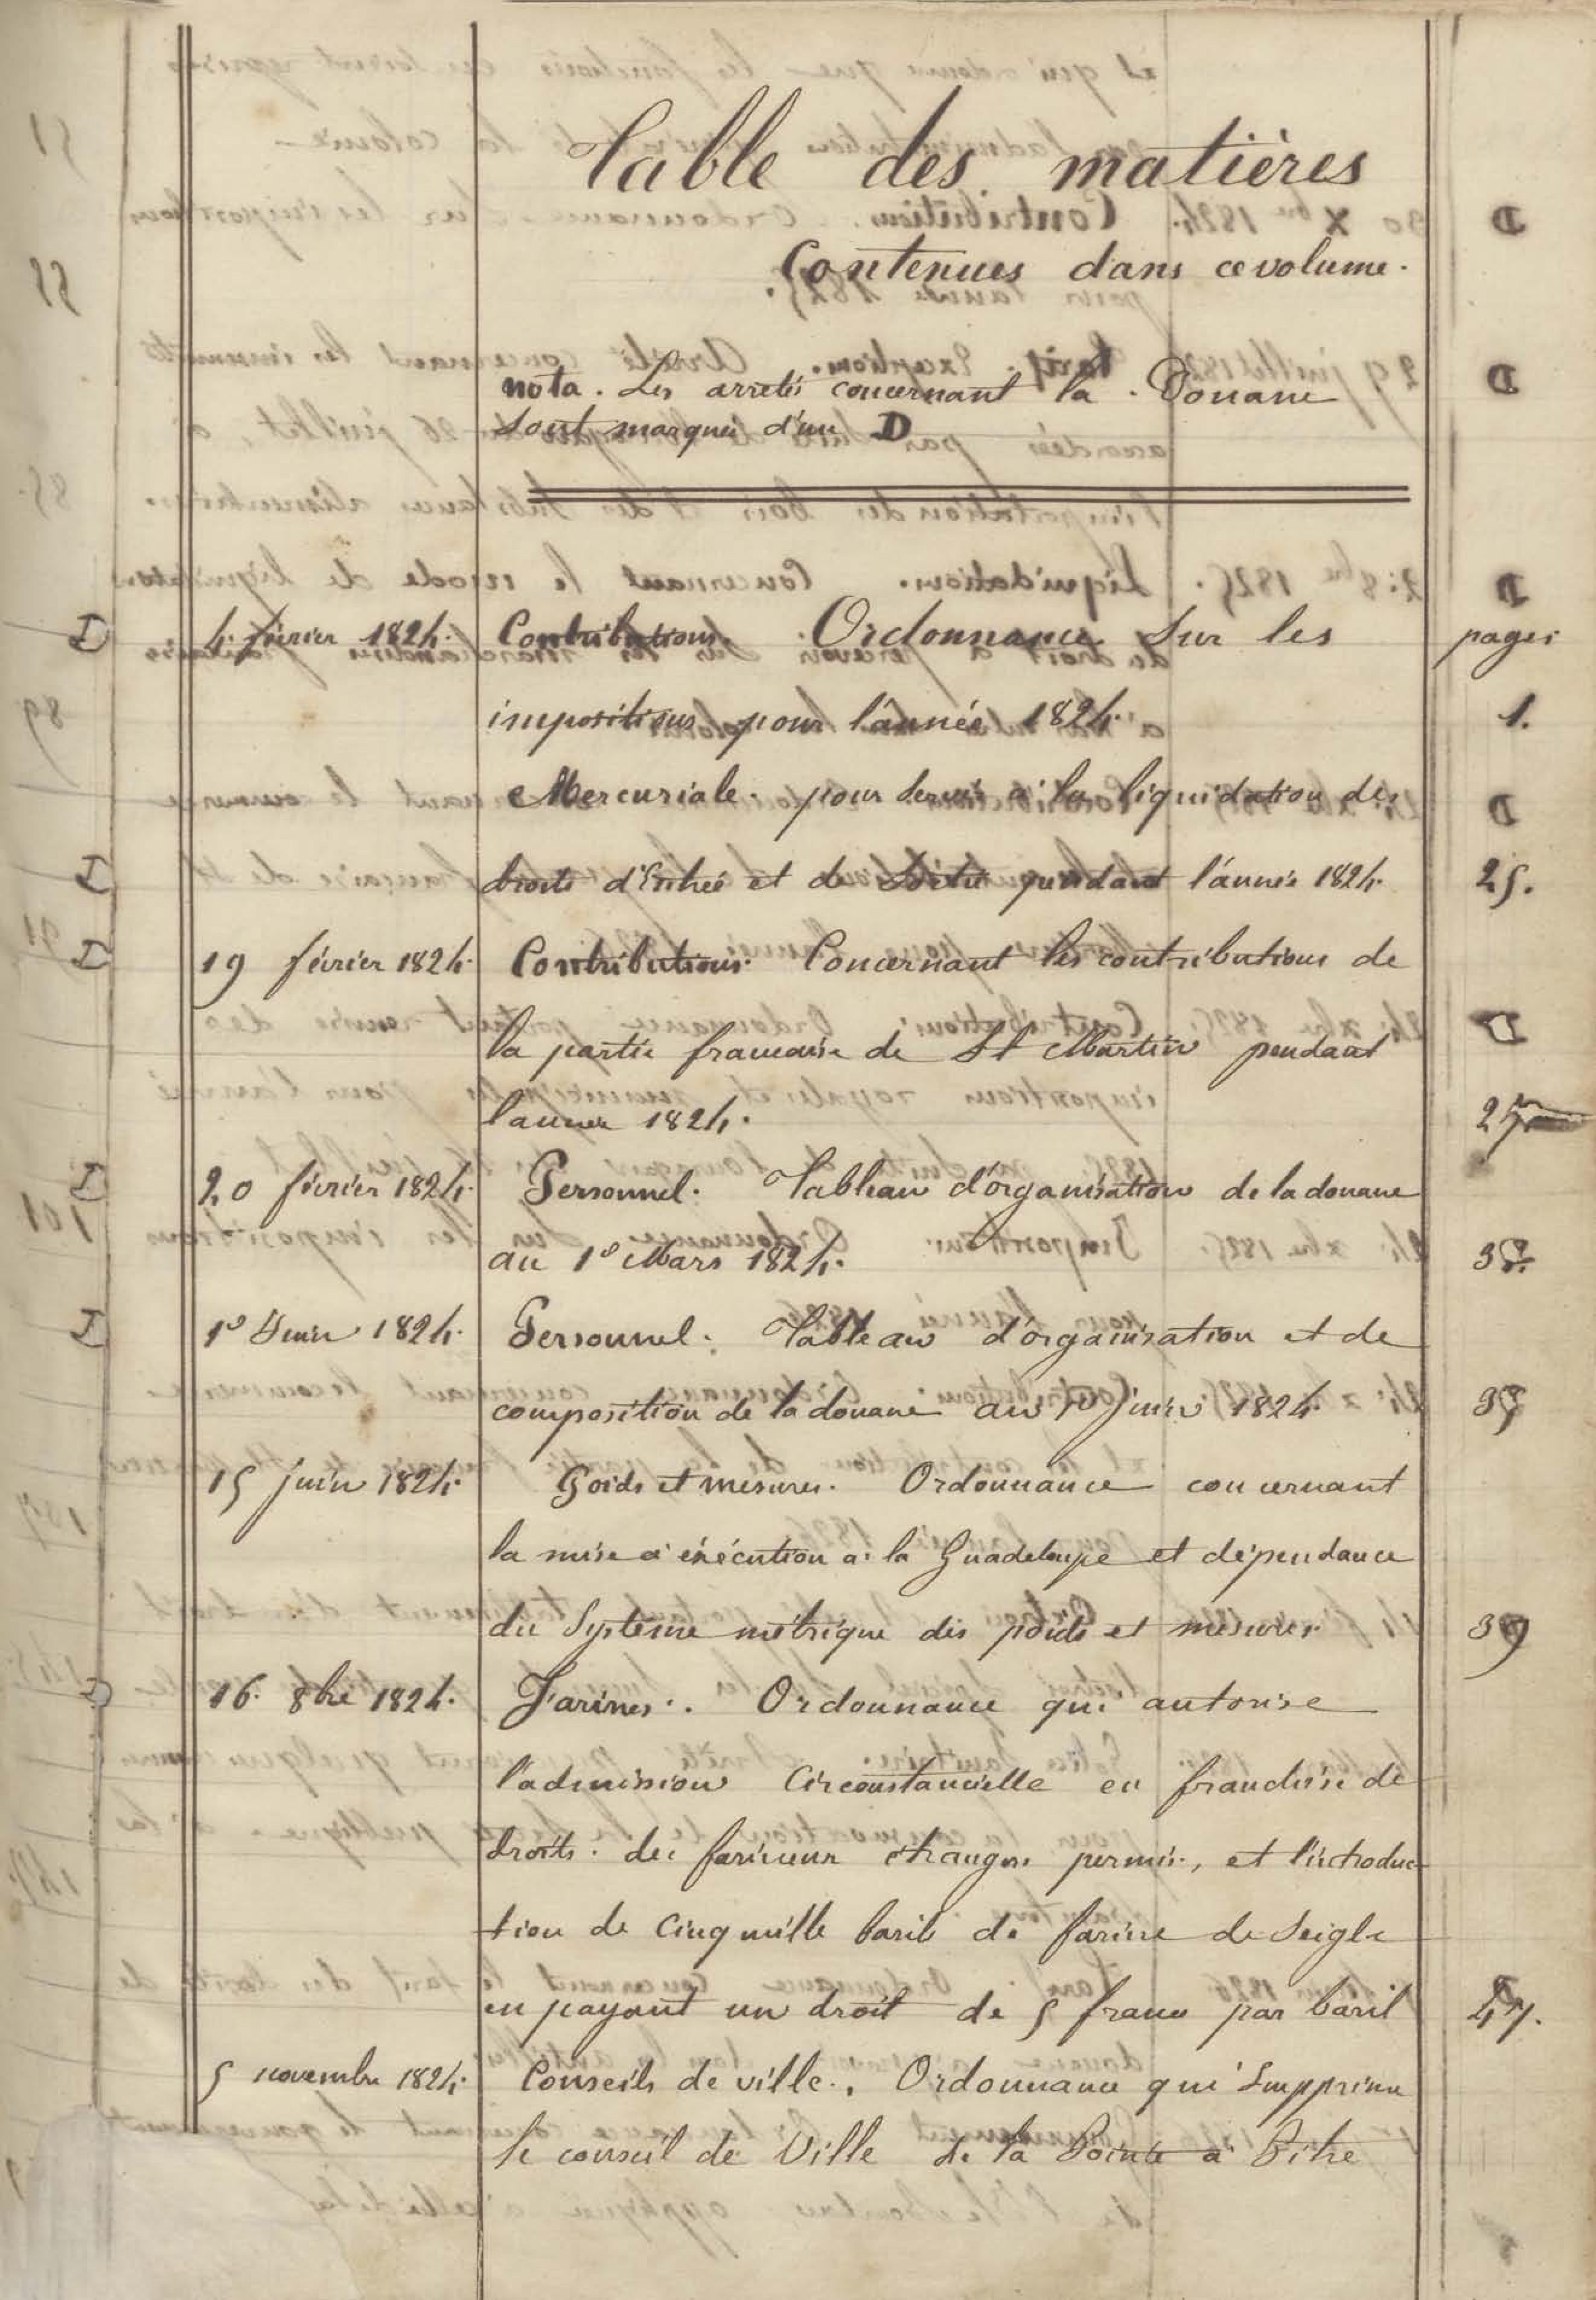 Table des matières
Contenues dans ce volume.
nota. Les arretés concernant la Douane
sont marqués d'un D
D 4. février 1824. Contributions. Ordonnance sur les pages
impositions pour l'année 1824. 1.
Mercuriale. pour servir à la liquidation des
D droits d'Entrée et de Sortie pendant l'année 1824. 25.
D 19 février 1824. Contributions. Concernant les contributions de
la partie francaise de St Martin pendant
l'année 1824. 27
D 20 février 1824. Personnel. Tableau d'organisation de la douane
au 1o Mars 1824. 35.
D 1o Juin 1824. Personnel. Tableau d'organisation et de
composition de la douane au 1o juin 1824. 37
15 juin 1824. Poids et mesures. Ordonnance concernant
la mise à éxécution à la Guadeloupe et dépendance
du Système métrique des poids et mesures. 39
D 16. 8bre 1824. Farines. Ordonnance qui autorise
l'admission Circonstancielle en franchise de
droits. des farineux étrangers permis, et l'introduc-
tion de Cinq mille barils de farine de Seigle
en payant un droit de 5 francs par baril 47.
5 novembre 1824. Conseils de ville. Ordonnance qui Supprime
le conseil de Ville de la Pointe à Pitre